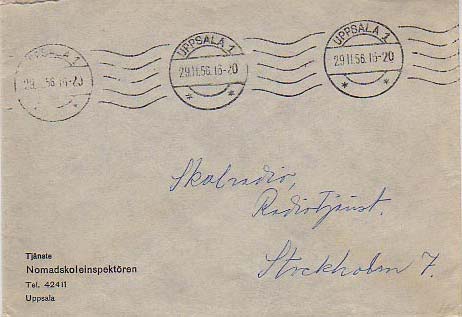 UPPSALA 1
29.11.56.16-20
UPPSALA 1
29.11.56.16-20
UPPSALA 1
29.11.56.16-20
Skolradio,
Radiotjänst.
Stockholm 7.
Tjänste
Nomadskoleinspektören
Tel. 42411
Uppsala